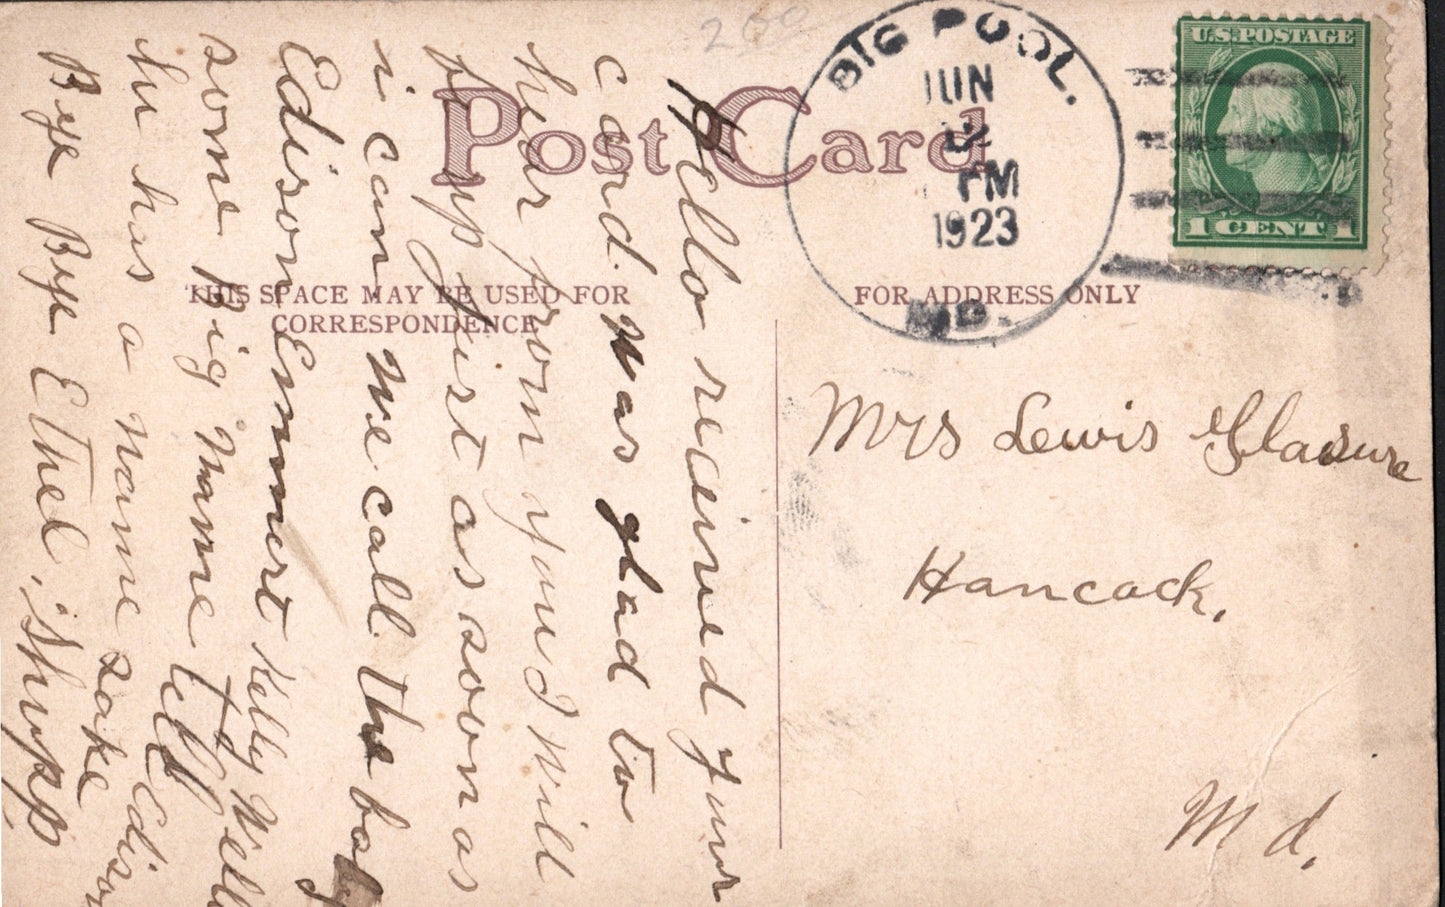 200
Post Card
THIS SPACE MAY BE USED FOR
CORRESPONDENCE
FOR ADDRESS ONLY
BIG POOL.
JUN
12
PM
1923
MD.
U.S. POSTAGE
1 CENT 1
Mrs Lewis Glasure
Hancock,
Md.
Hello received your
card. Was glad to
hear from you I will
be up just as soon as
i can We call the boy
Edison Emmert Kelly Well
some Big Name tell
hu has a name sake Edison
Bye Bye Ethel Shupp